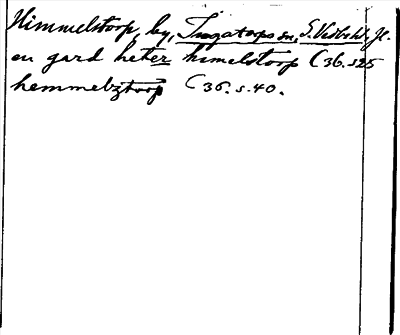 Himmelstorp, by, Ingatorps sn, S. Vedbo hd, Jl.
en gard heter himelstorp (36. s 25
hemmelztorp (36. s. 40.